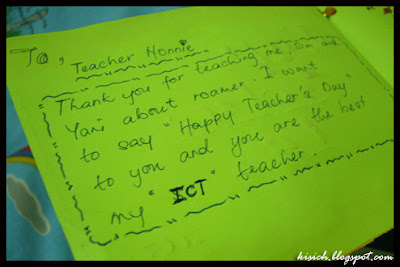 To, Teacher Nonnie
Thank you for teaching me, Sim and
Yani about roamer. I want
to say "Happy Teacher's Day"
to you and you are the best
my "ICT" teacher.
kisich.blogspot.com